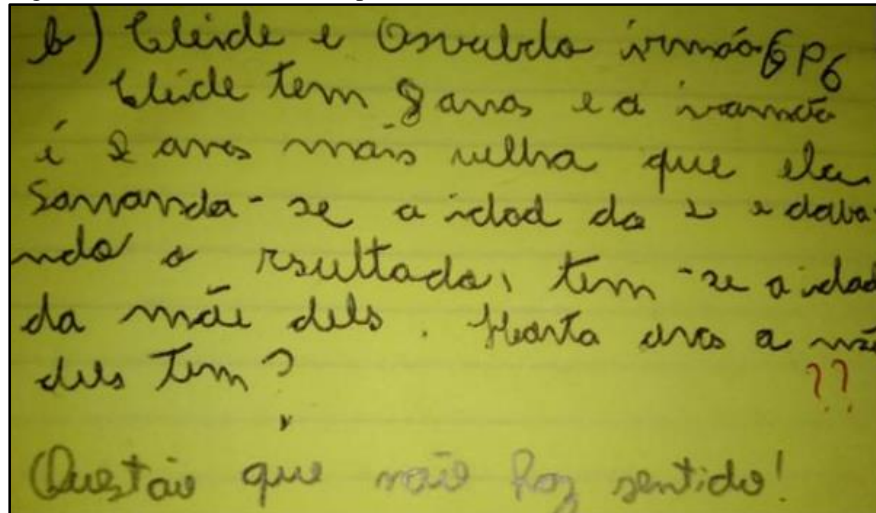 b) Cleide e Osvaldo irmãos GP6
Cleide tem 8 anos e a irmão
é 2 anos mais velha que ela
Somanda-se a idad da 2 e daba-
ndo o rsultado, tem-se a idad
da mãe dels. Hanta anos a mã
dels Tem? ??
Questão que não faz sentido!